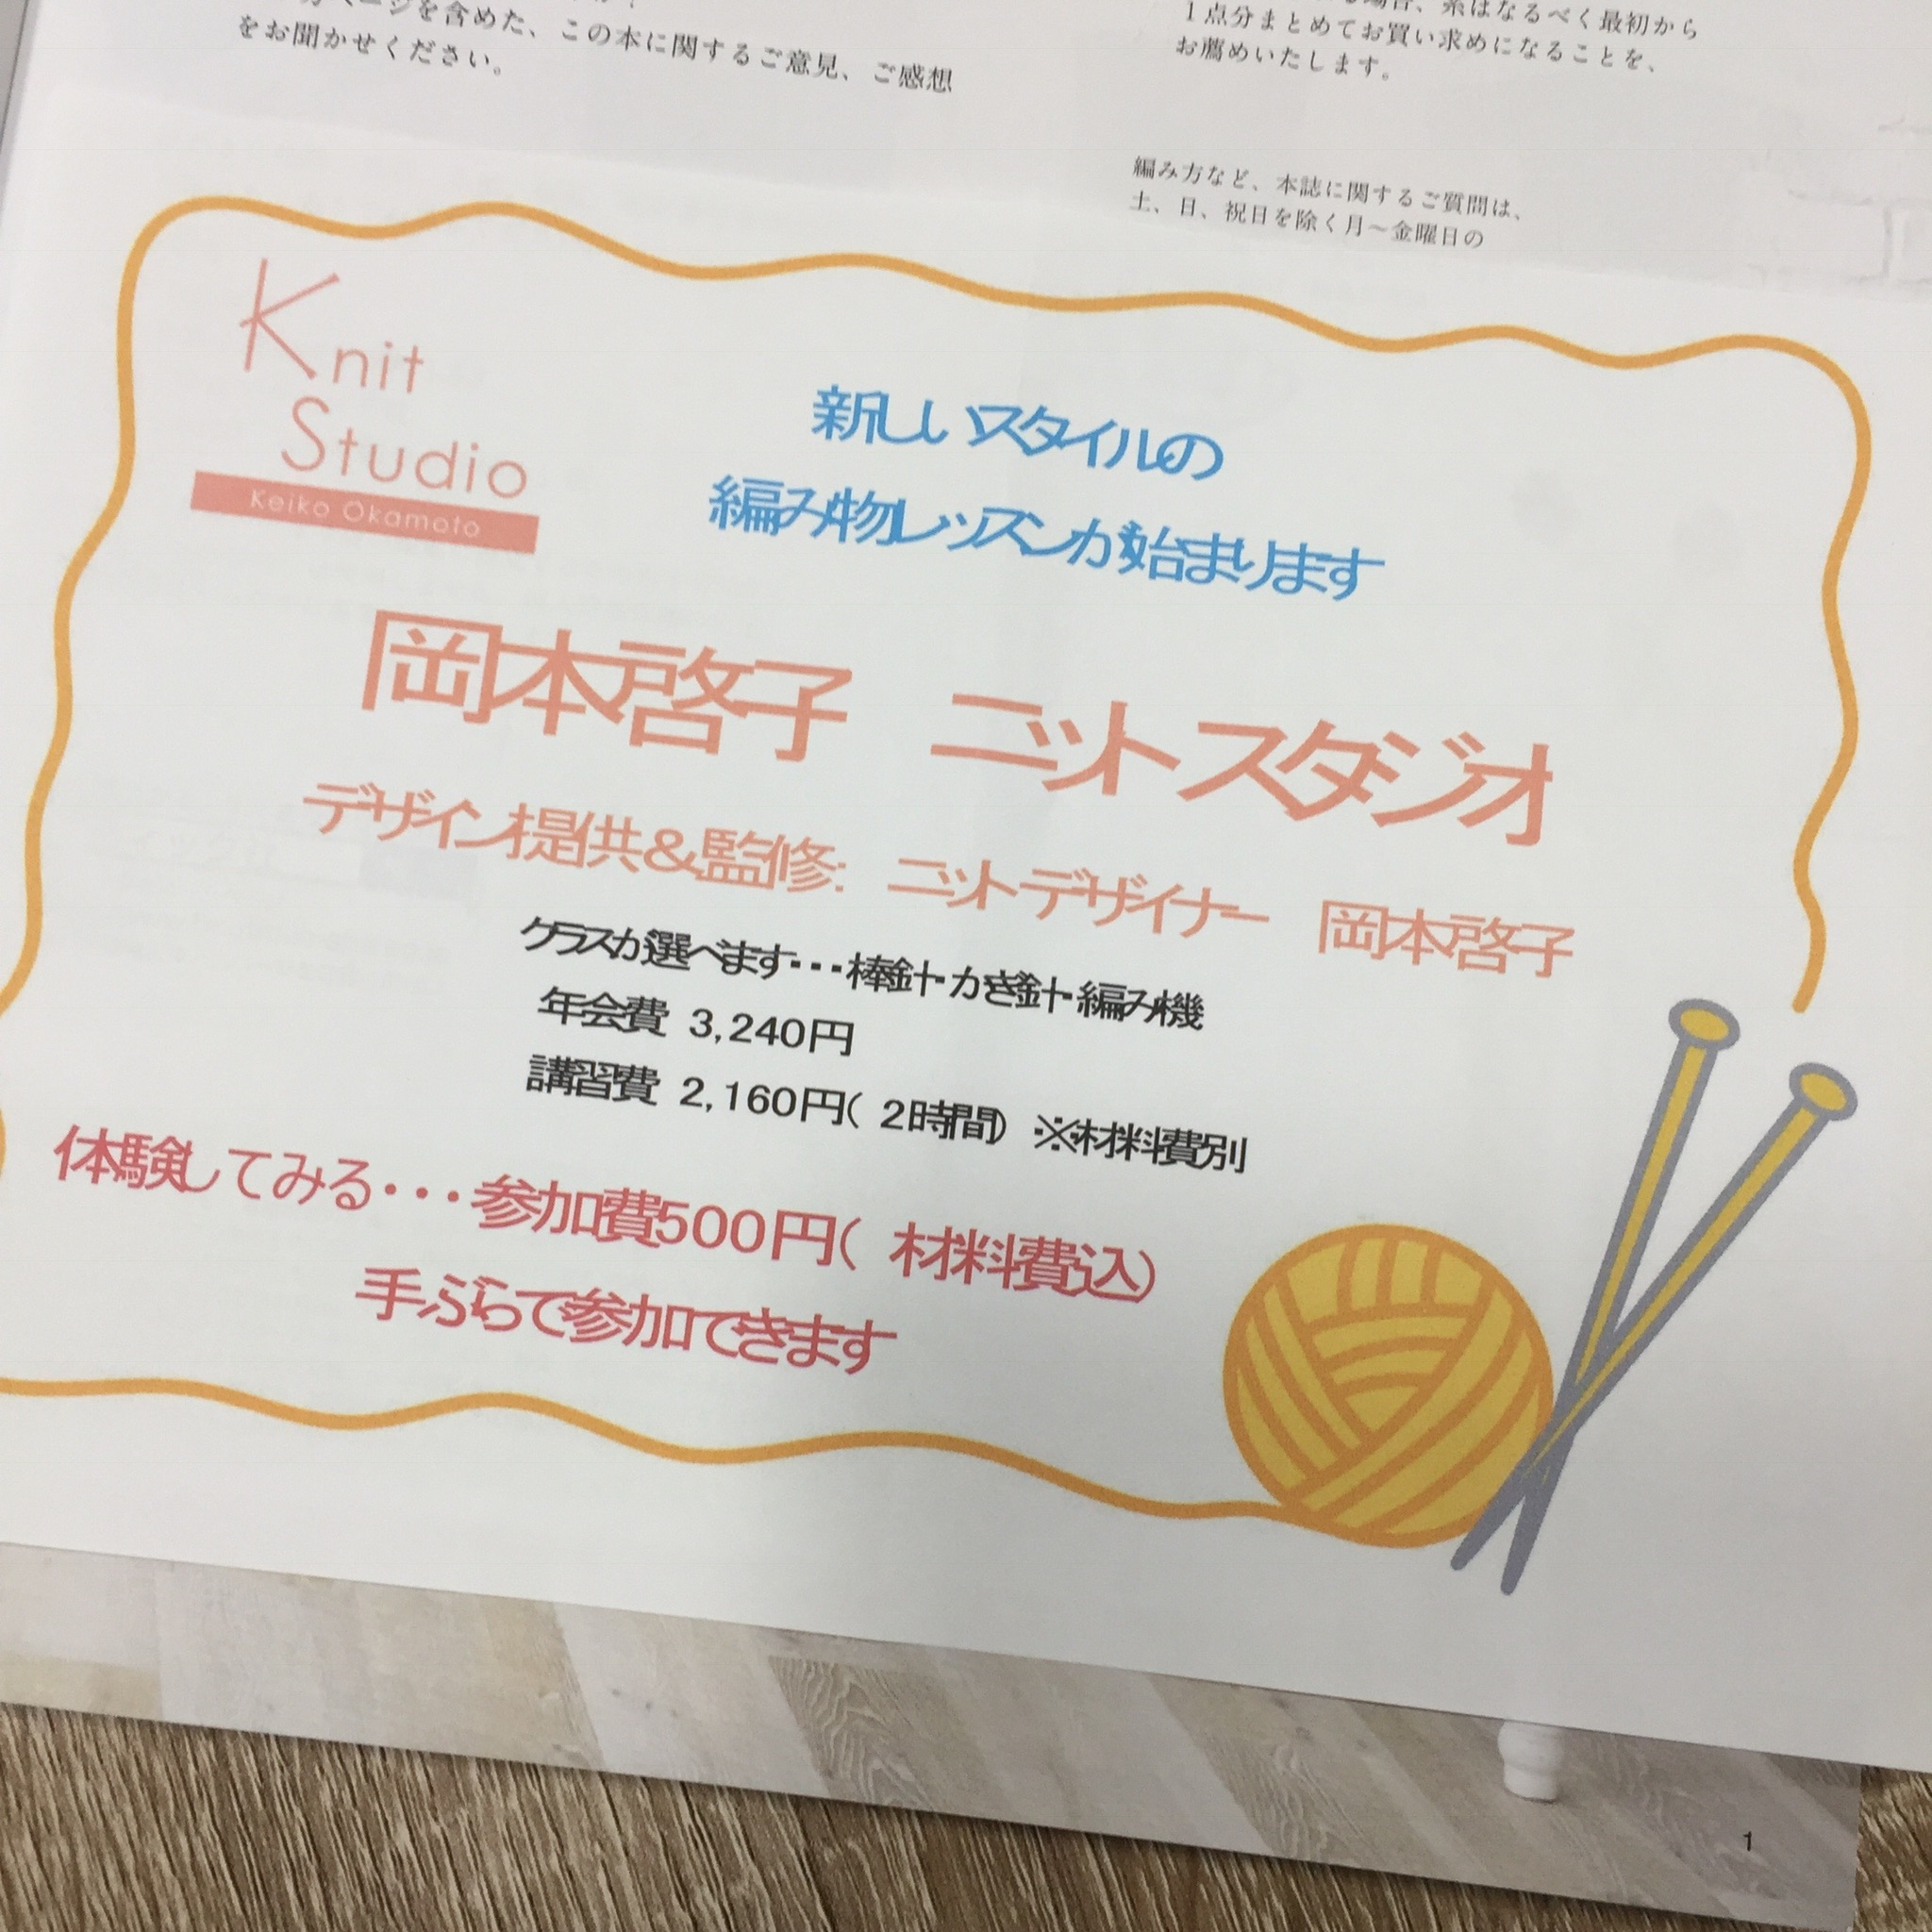 ページを含めた、この本に関するご意見、ご感想
をお聞かせください。
糸はなるべく最初から
1点分まとめてお買い求めになることを、
お薦めいたします。
編み方など、本誌に関するご質問は、
土、日、祝日を除く月〜金曜日の
Knit
Studio
Keiko Okamoto
新しいスタイルの
編み物レッスンが始まります
岡本啓子 ニットスタジオ
デザイン提供&監修: ニットデザイナー 岡本啓子
クラスが選べます・・・棒針・かぎ針・編み機
年会費 3,240円
講習費 2,160円(2時間) ※材料費別
体験してみる・・・参加費500円(材料費込)
手ぶらで参加できます
1